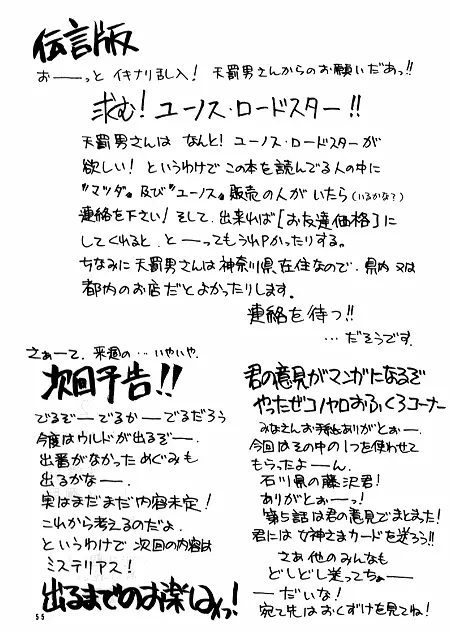 伝言版
おーーっと イキナリ乱入! 天罰男さんからのお願いだあっ!!
求む! ユーノス・ロードスター!!
天罰男さんは なんと! ユーノス・ロードスターが
欲しい! というわけで この本を読んでる人の中に
〝マツダ〟及び〝ユーノス〟販売の人がいたら(いるかな?)
連絡を下さい! そして、出来れば[お友達価格]に
してくれると、とーーってもうれPかったりする。
ちなみに天罰男さんは神奈川県在住なので、県内又は
都内のお店だとよかったりします。
連絡を待つ!!
…だそうです。
さぁーて、来週の…いやいや、
次回予告!!
でるぞーー でるかーー でるだろう
今度はウルドが出るぞー。
出番がなかっためぐみも
出るかなー。
実はまだまだ内容未定!
これから考えるのだよ。
というわけで 次回の内容は
ミステリアス!
出るまでのお楽しみっ!
君の意見がマンガになるぞ
やったぜコノヤロおふくろコーナー
みなさんお手紙ありがとぉー。
今回はその中の1つを使わせて
もらったよーん。
石川県の藤沢君!
ありがとぉーっ!
第5話は君の意見でまとまった!
君には女神さまカードを送ろう!!
さぁ他のみんなも
どしどし送ってちょーー
ーだいな!
宛て先はおくずけを見てね!
55